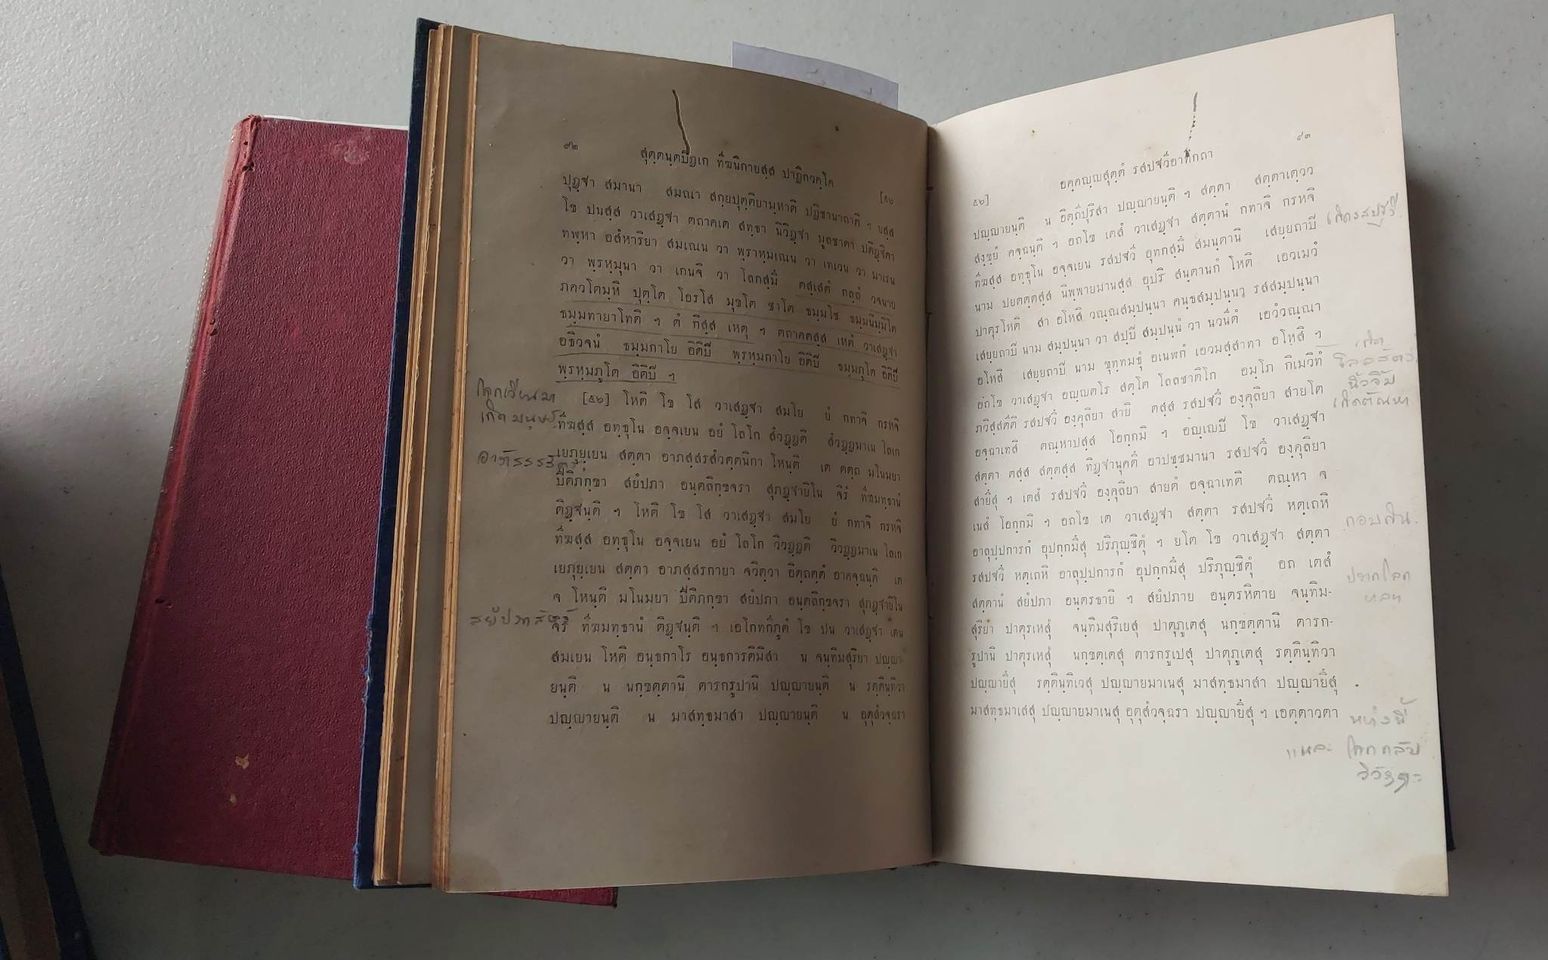 ๙๒
สุตฺตนฺตปิฏเก ทีฆนิกายสฺส ปาฏิกวคฺโค
[๕๖
ปุฏฺฐา สมานา สมณา สกฺยปุตฺติยามฺหาติ ปฏิชานาถาติ ฯ ยสฺส
โข ปนสฺส วาเสฏฺฐา ตถาคเต สทฺธา นิวิฏฺฐา มูลชาตา ปติฏฺฐิตา
ทฬฺหา อสํหาริยา สมเณน วา พฺราหฺมเณน วา เทเวน วา มาเรน
วา พฺรหฺมุนา วา เกนจิ วา โลกสฺมึ ตสฺเสตํ กลฺลํ วจนาย
ภควโตมฺหิ ปุตฺโต โอรโส มุขโต ชาโต ธมฺมโช ธมฺมนิมฺมิโต
ธมฺมทายาโทติ ฯ ตํ กิสฺส เหตุ ฯ ตถาคตสฺส เหตํ วาเสฏฺฐา
อธิวจนํ ธมฺมกาโย อิติปิ พฺรหฺมกาโย อิติปิ ธมฺมภูโต อิติปิ
พฺรหฺมภูโต อิติปิ ฯ
โลกเวียนมา
เกิดมนุษย์
[๕๖] โหติ โข โส วาเสฏฺฐา สมโย ยํ กทาจิ กรหจิ
ทีฆสฺส อทฺธุโน อจฺจเยน อยํ โลโก สํวฏฺฏติ สํวฏฺฏมาเน โลเก
เยภุยฺเยน สตฺตา อาภสฺสรสํวตฺตนิกา โหนฺติ เต ตตฺถ มโนมยา
ปีติภกฺขา สยํปภา อนฺตลิกฺขจรา สุภฏฺฐายิโน จิรํ ทีฆมทฺธานํ
ติฏฺฐนฺติ ฯ โหติ โข โส วาเสฏฺฐา สมโย ยํ กทาจิ กรหจิ
ทีฆสฺส อทฺธุโน อจฺจเยน อยํ โลโก วิวฏฺฏติ วิวฏฺฏมาเน โลเก
เยภุยฺเยน สตฺตา อาภสฺสรกายา จวิตฺวา อิตฺถตฺตํ อาคจฺฉนฺติ เต
จ โหนฺติ มโนมยา ปีติภกฺขา สยํปภา อนฺตลิกฺขจรา สุภฏฺฐายิโน
จิรํ ทีฆมทฺธานํ ติฏฺฐนฺติ ฯ เอโกทกีภูตํ โข ปน วาเสฏฺฐา เตน
สมเยน โหติ อนฺธกาโร อนฺธการติมิสา น จนฺทิมสุริยา ปญฺญา-
ยนฺติ น นกฺขตฺตานิ ตารกรูปานิ ปญฺญายนฺติ น รตฺตินฺทิวา
ปญฺญายนฺติ น มาสทฺธมาสา ปญฺญายนฺติ น อุตุสํวจฺฉรา
๙๓
อคฺคญฺญสุตฺตํ รสปฐวิยาทิกถา
๕๖]
ปญฺญายนฺติ น อิตฺถีปุริสา ปญฺญายนฺติ ฯ สตฺตา สตฺตาเตฺวว
สงฺขฺยํ คจฺฉนฺติ ฯ อถโข เตสํ วาเสฏฺฐา สตฺตานํ กทาจิ กรหจิ
ทีฆสฺส อทฺธุโน อจฺจเยน รสปฐวี อุทกสฺมึ สมนฺตานิ เสยฺยถาปิ
นาม ปยตตฺตสฺส นิพฺพายมานสฺส อุปริ สนฺตานกํ โหติ เอวเมวํ
ปาตุรโหติ สา อโหสิ วณฺณสมฺปนฺนา คนฺธสมฺปนฺนา รสสมฺปนฺนา
เสยฺยถาปิ นาม สมฺปนฺนา วา สปฺปิ สมฺปนฺนํ วา นวนีตํ เอวํวณฺณา
อโหสิ เสยฺยถาปิ นาม ขุทฺทมธุ อเนฬกํ เอวมสฺสาทา อโหสิ ฯ
อถโข วาเสฏฺฐา อญฺญตโร สตฺโต โลลชาติโก อมฺโภ กิเมวิทํ
ภวิสฺสตีติ รสปฐวึ องฺคุลิยา สายิ ตสฺส รสปฐวึ องฺคุลิยา สายโต
อจฺฉาเทสิ ตณฺหาปสฺส โอกฺกมิ ฯ อญฺเญปิ โข วาเสฏฺฐา
สตฺตา ตสฺส สตฺตสฺส ทิฏฺฐานุคตึ อาปชฺชมานา รสปฐวึ องฺคุลิยา
สายึสุ ฯ เตสํ รสปฐวึ องฺคุลิยา สายตํ อจฺฉาเทติ ตณฺหา จ
เนสํ โอกฺกมิ ฯ อถโข เต วาเสฏฺฐา สตฺตา รสปฐวึ หตฺเถหิ
อาลุปฺปการกํ อุปกฺกมึสุ ปริภุญฺชิตุํ ฯ ยโต โข วาเสฏฺฐา สตฺตา
รสปฐวึ หตฺเถหิ อาลุปฺปการกํ อุปกฺกมึสุ ปริภุญฺชิตุํ อถ เตสํ
สตฺตานํ สยํปภา อนฺตรธายิ ฯ สยํปภาย อนฺตรหิตาย จนฺทิม-
สุริยา ปาตุรเหสุํ จนฺทิมสุริเยสุ ปาตุภูเตสุ นกฺขตฺตานิ ตารก-
รูปานิ ปาตุรเหสุํ นกฺขตฺเตสุ ตารกรูเปสุ ปาตุภูเตสุ รตฺตินฺทิวา
ปญฺญายึสุ รตฺตินฺทิเวสุ ปญฺญายมาเนสุ มาสทฺธมาสา ปญฺญายึสุ
มาสทฺธมาเสสุ ปญฺญายมาเนสุ อุตุสํวจฺฉรา ปญฺญายึสุ ฯ เอตฺตาวตา
เกิดรสปฐวี
นิ้วจิ้ม
เกิดตัณหา
กอบกิน
แหละ โลกกลับ
วิวัฏฏะ